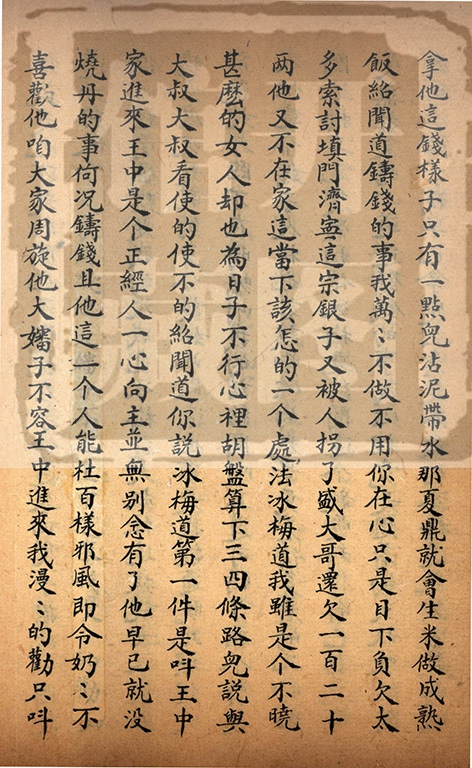 拿他這錢樣子只有一點兒沾泥帶水那夏鼎就會生米做成熟
飯紹聞道鑄錢的事我萬〻不做不用你在心只是目下負欠太
多索討填門濟寍這宗銀子又被人拐了盛大哥還欠一百二十
两他又不在家這當下該怎的一个處法冰梅道我雖是个不曉
甚麽的女人却也為日子不行心裡胡盤算下三四條路兒説與
大叔大叔看使的使不的紹聞道你説冰梅道第一件是呌王中
家進來王中是个正經人一心向主並無别念有了他早已就没
燒丹的事何况鑄錢且他這一个人能杜百樣邪風即令奶〻不
喜歡他咱大家周旋他大嬸子不容王中進來我漫〻的勸只呌